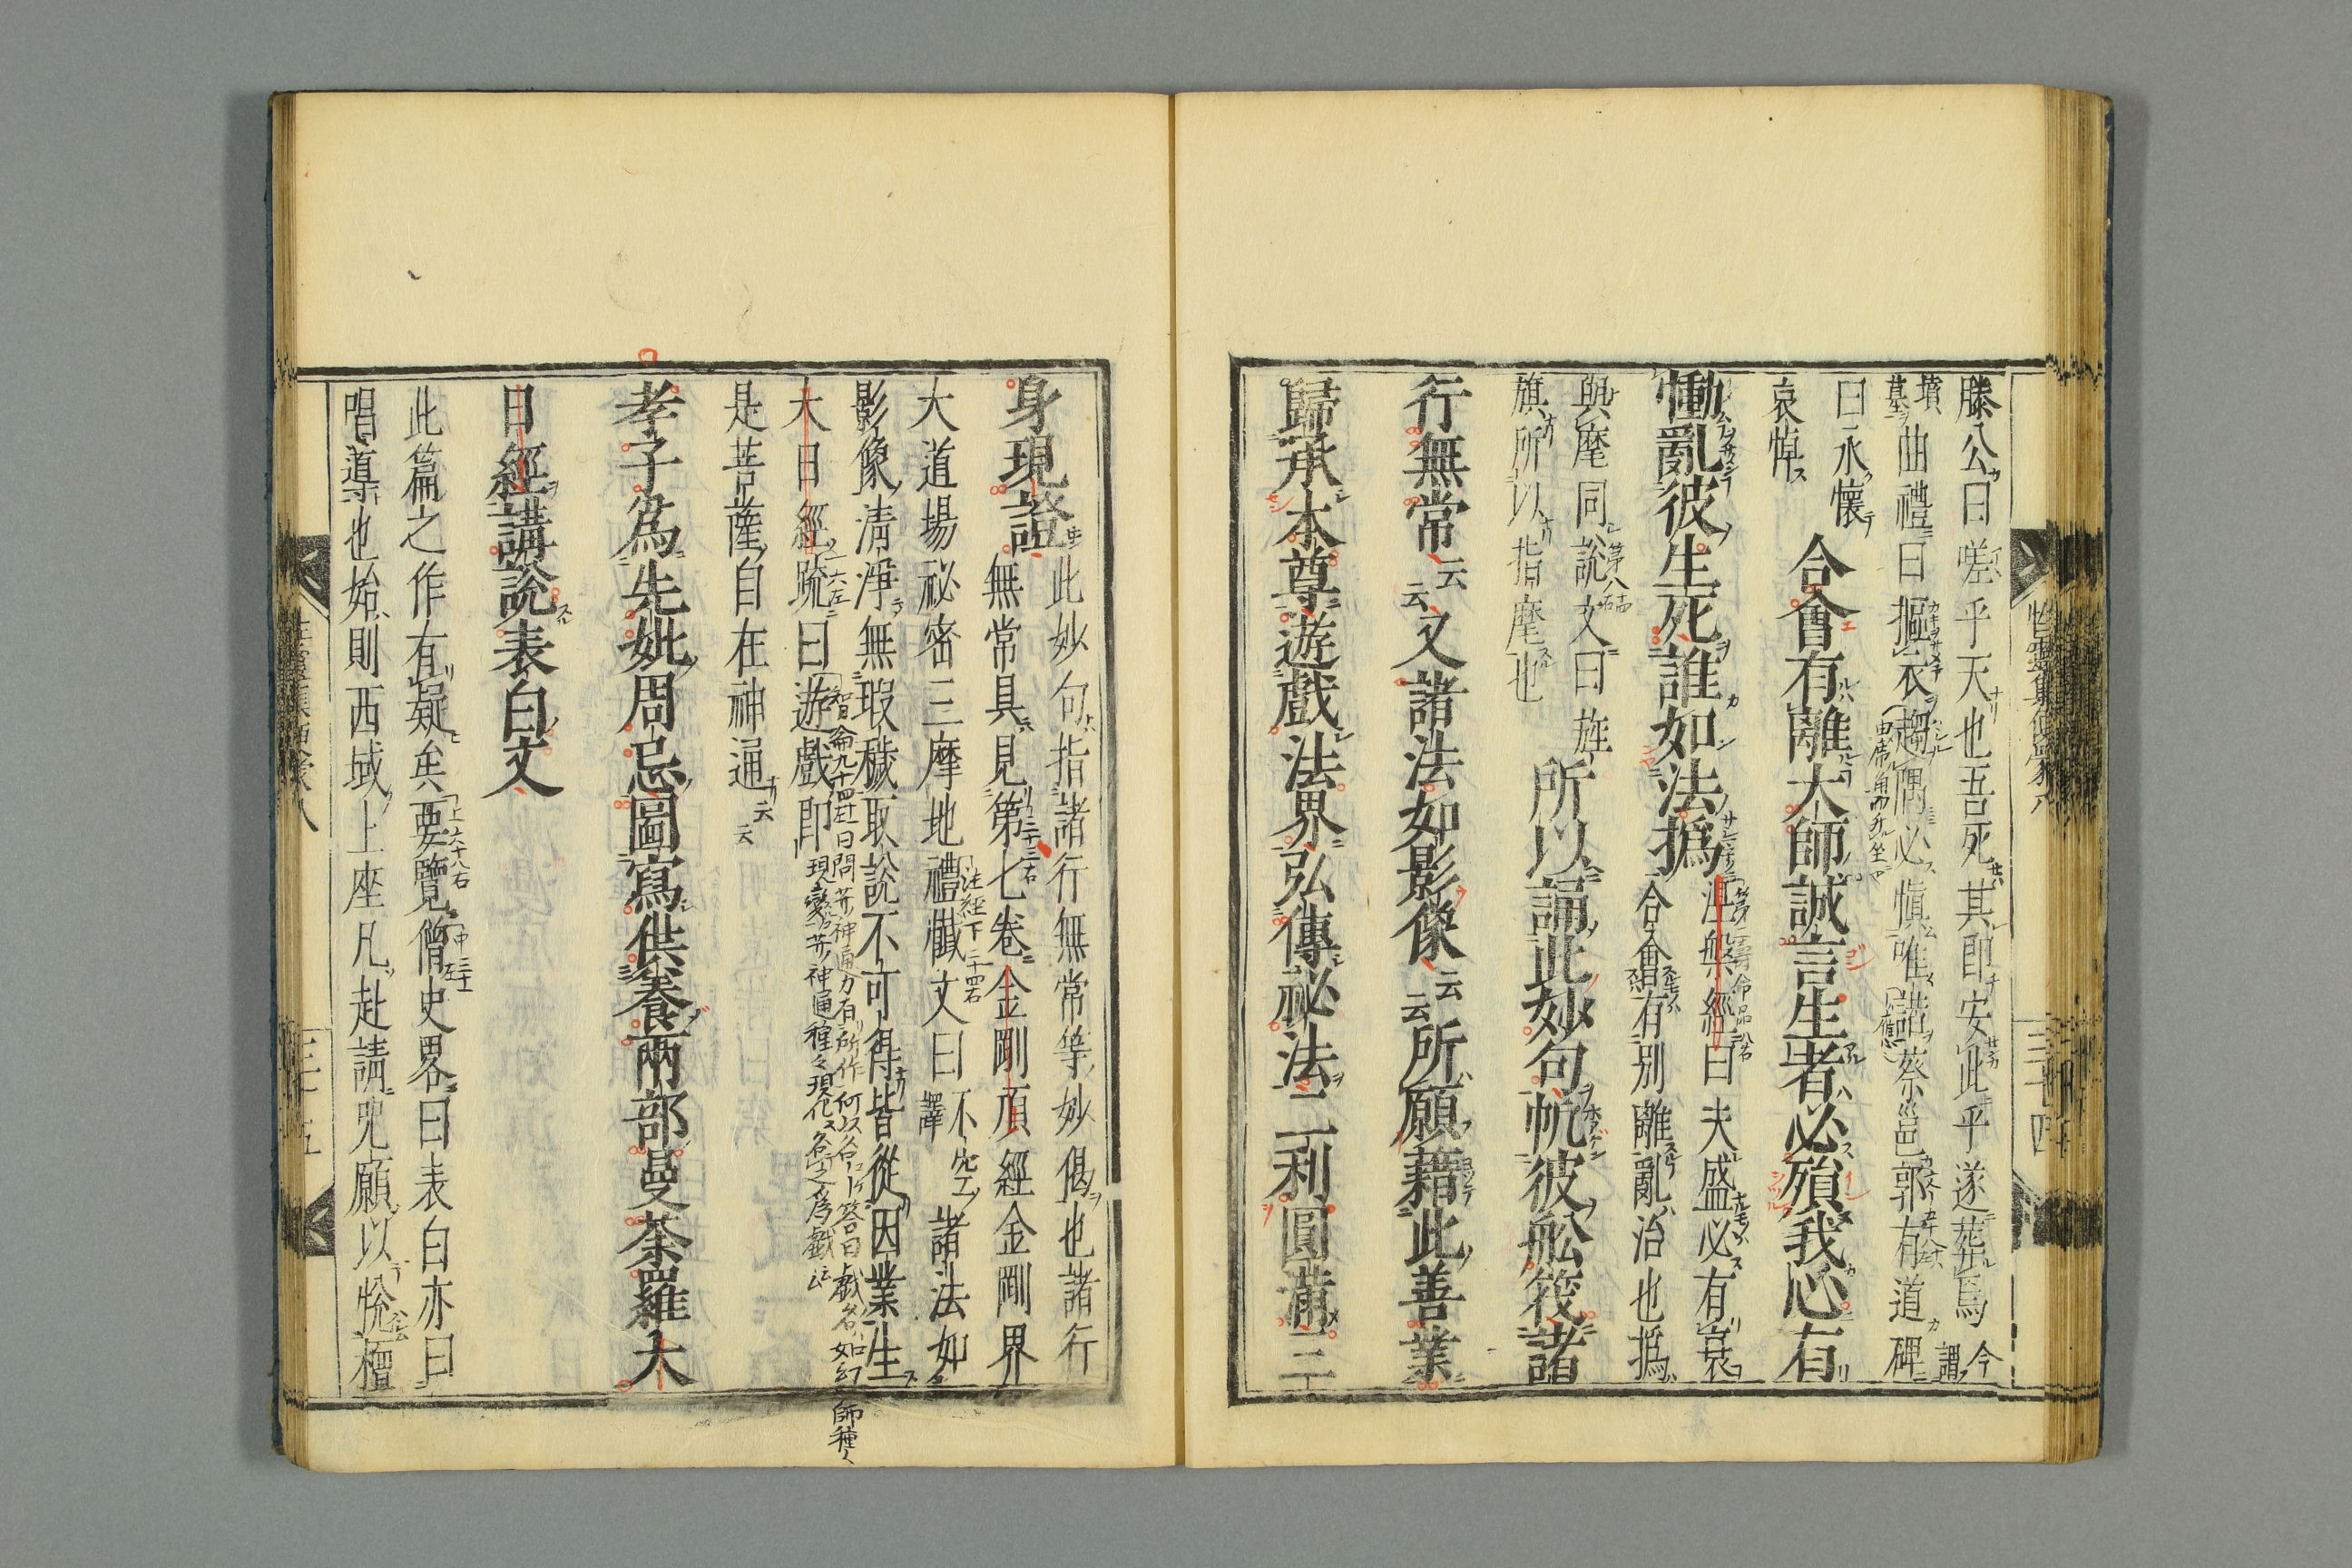 滕公曰嗟乎天也吾死其即安此乎遂葬焉今謂
墳墓曲禮曰摳衣趨隅必愼唯諾蔡邕郭有道碑
曰永懷哀悼
合會有離大師誠言生者必殞我心有
慟亂彼生死誰如法撝
涅槃經曰夫盛必有衰
合會有別離亂治也撝
與麾同說文曰旌旗所以指麾也
所以誦此妙句帆彼舩筏諸
行無常云云又諸法如影像云云所願藉此善業
歸承本尊遊戲法界弘傳祕法二利圓滿三
三十四
身現證
此妙句指諸行無常等妙偈也諸行
無常具見第七卷金剛頂經金剛界
大道場祕密三摩地禮懺文曰不空譯諸法如
影像清淨無瑕穢取說不可得皆從因業生
大日經疏曰遊戲即
是菩薩自在神通云云
孝子為先妣周忌圖寫供養兩部曼荼羅大
日經講說表白文
此篇之作有疑矣要覽僧史畧曰表白亦曰
唱導也始則西域上座凡赴請呪願以悅檀